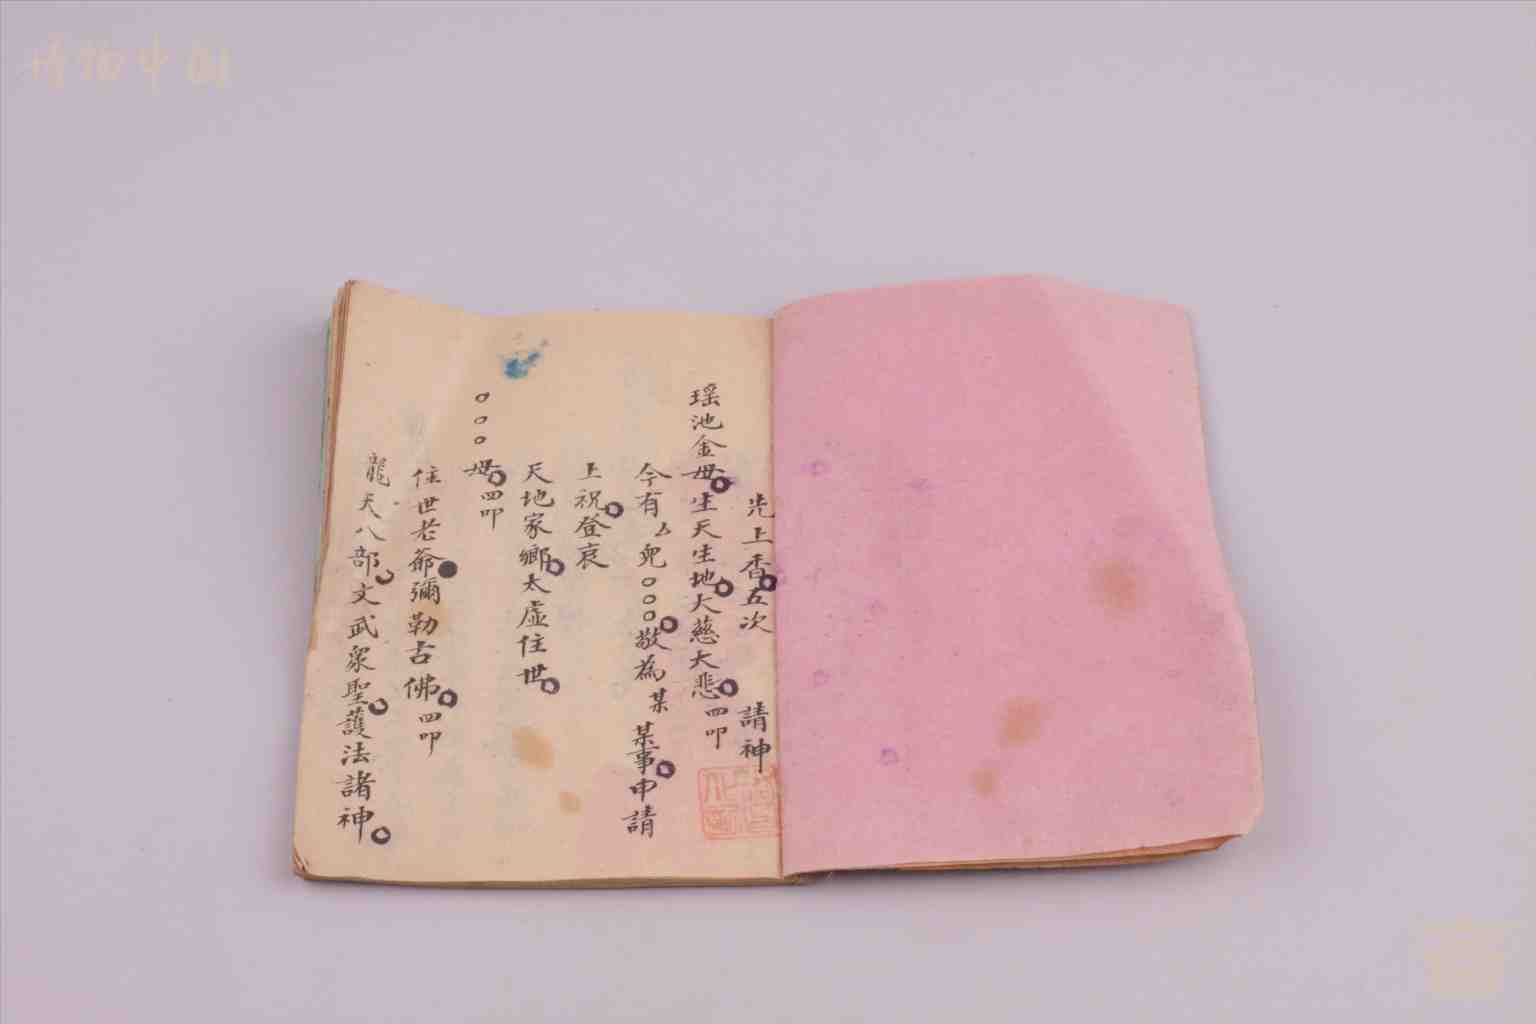 博物中国
先上香五次 請神
瑶池金母生天生地大慈大悲四叩
今有厶兒○○○敬為某某事申請
上祝登哀
天地家鄉太虛住世
○○○母四叩
住世老爺彌勒古佛四叩
龍天八部文武衆聖護法諸神